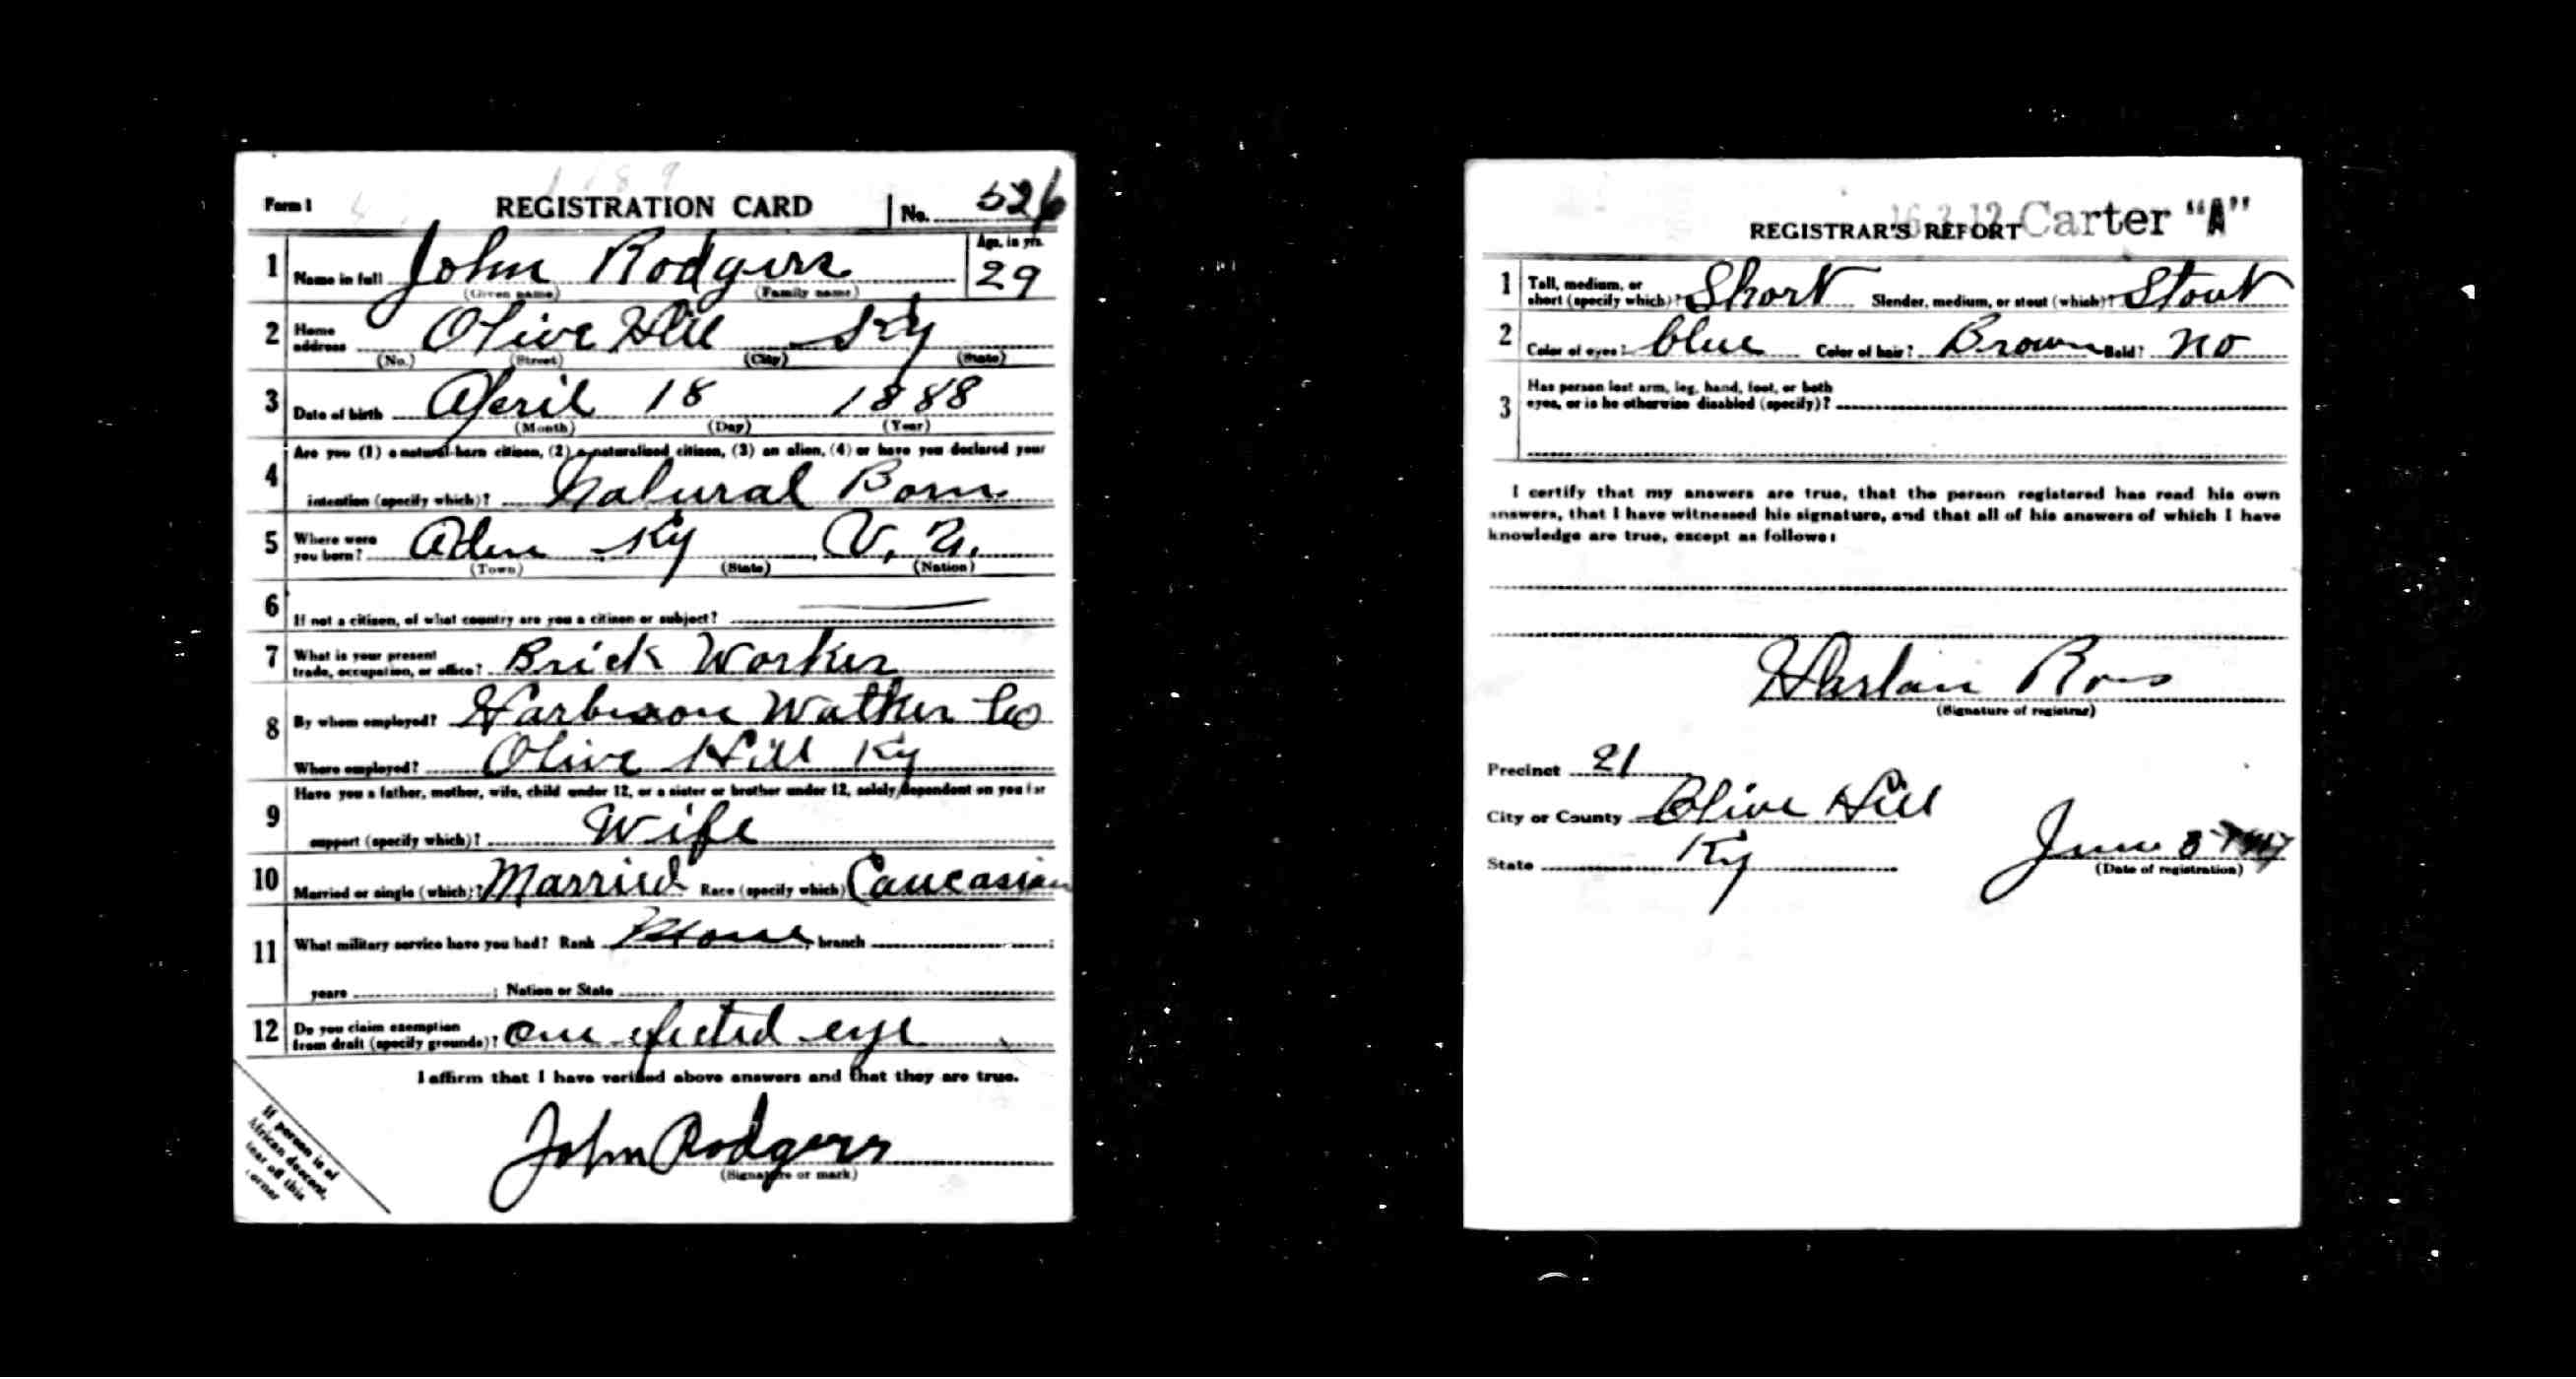 Form 1 REGISTRATION CARD No. 526
1 Name in full John Rodgers Age, in yrs. 29
(Given name) (Family name)
2 Home address Olive Hill Ky
(No.) (Street) (City) (State)
3 Date of birth April 18 1888
(Month) (Day) (Year)
4 Are you (1) a natural-born citizen, (2) a naturalized citizen, (3) an alien, (4) or have you declared your
intention (specify which)? Natural Born
5 Where were you born? Aden Ky
(Town) (State) (Nation)
6 If not a citizen, of what country are you a citizen or subject?
7 What is your present trade, occupation, or office? Brick Worker
8 By whom employed? Harbison Walker Co
Where employed? Olive Hill Ky
9 Have you a father, mother, wife, child under 12, or a sister or brother under 12, solely dependent on you for
support (specify which)? Wife
10 Married or single (which)? Married Race (specify which) Caucasian
11 What military service have you had? Rank None branch ;
years ; Nation or State
12 Do you claim exemption from draft (specify grounds)? one efected eye
I affirm that I have verified above answers and that they are true.
John Rodgers
(Signature or mark)
If person is of
African descent,
tear off this
corner
REGISTRAR'S REPORT Carter "A"
1 Tall, medium, or short (specify which)? Short Slender, medium, or stout (which)? Stout
2 Color of eyes? blue Color of hair? Brown Bald? no
3 Has person lost arm, leg, hand, foot, or both
eyes, or is he otherwise disabled (specify)?
I certify that my answers are true, that the person registered has read his own
answers, that I have witnessed his signature, and that all of his answers of which I have
knowledge are true, except as follows:
Harlan Ross
(Signature of registrar)
Precinct 21
City or County Olive Hill
State Ky June 5
(Date of registration)